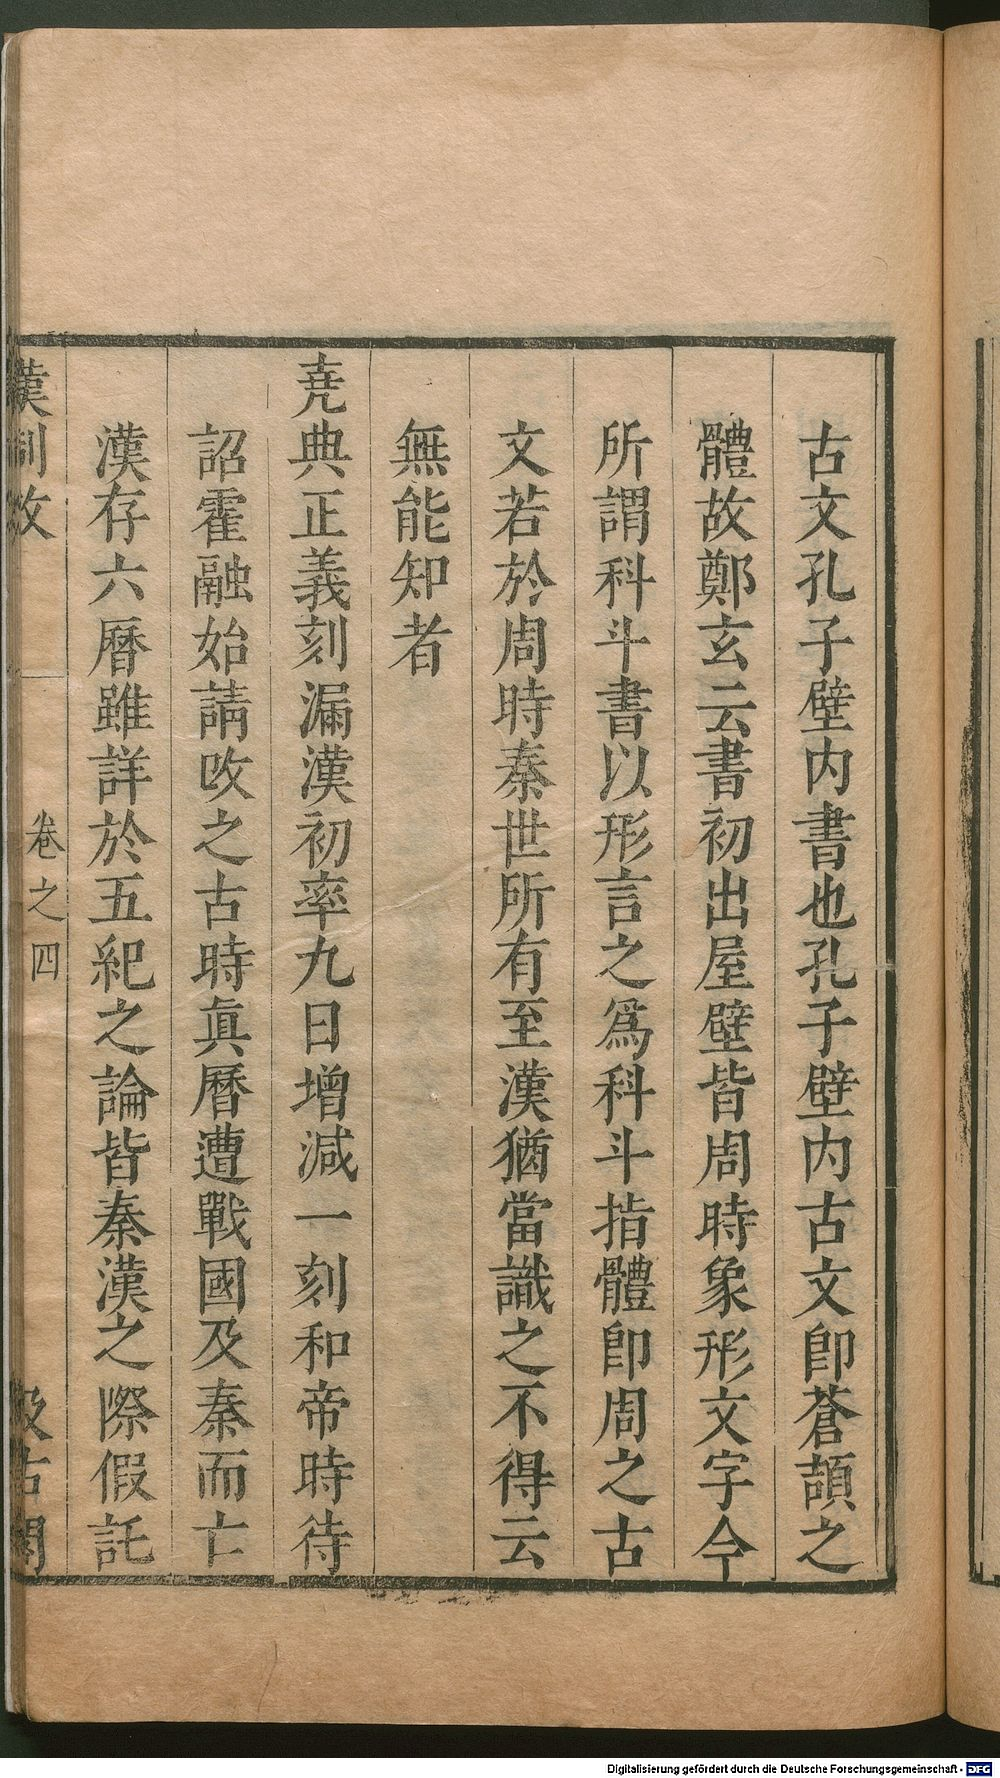 古文孔子壁内書也孔子壁内古文卽蒼頡之
體故鄭玄云書初出屋壁皆周時象形文字今
所謂科斗書以形言之爲科斗指體卽周之古
文若於周時秦世所有至漢猶當識之不得云
無能知者
堯典正義刻漏漢初率九日增減一刻和帝時待
詔霍融始請攺之古時眞曆遭戰國及秦而亡
漢存六曆雖詳於五紀之論皆秦漢之際假託
漢制攷
卷之四
汲古閣
Digitalisierung gefördert durch die Deutsche Forschungsgemeinschaft - DFG